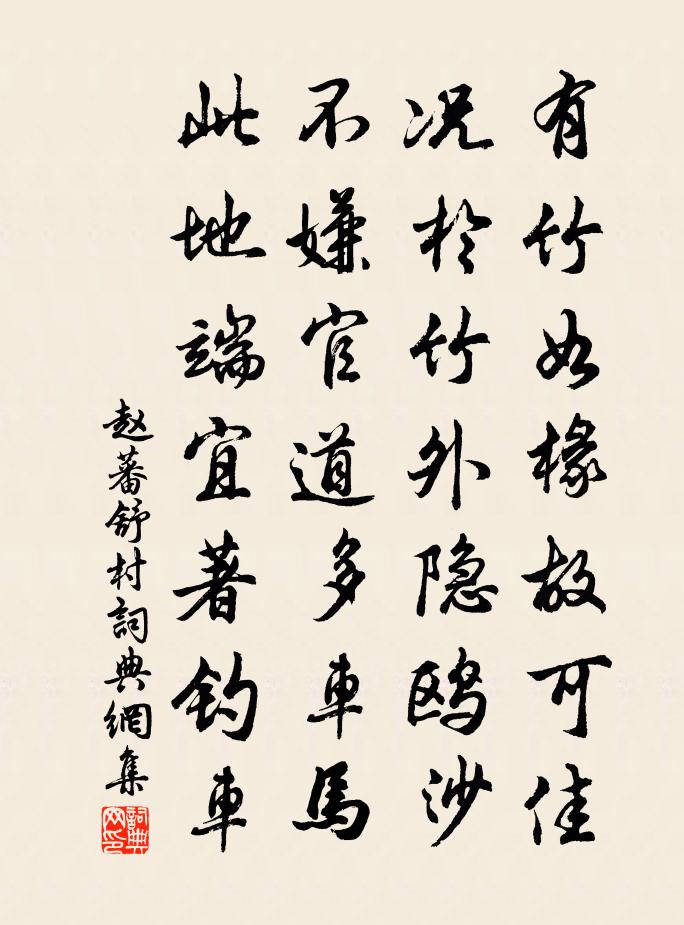 有竹如椽故可佳
况於竹外隐鸥沙
不嫌官道多車馬
此地端宜著钓車
赵蕃舒村詞典網集
詞典网印